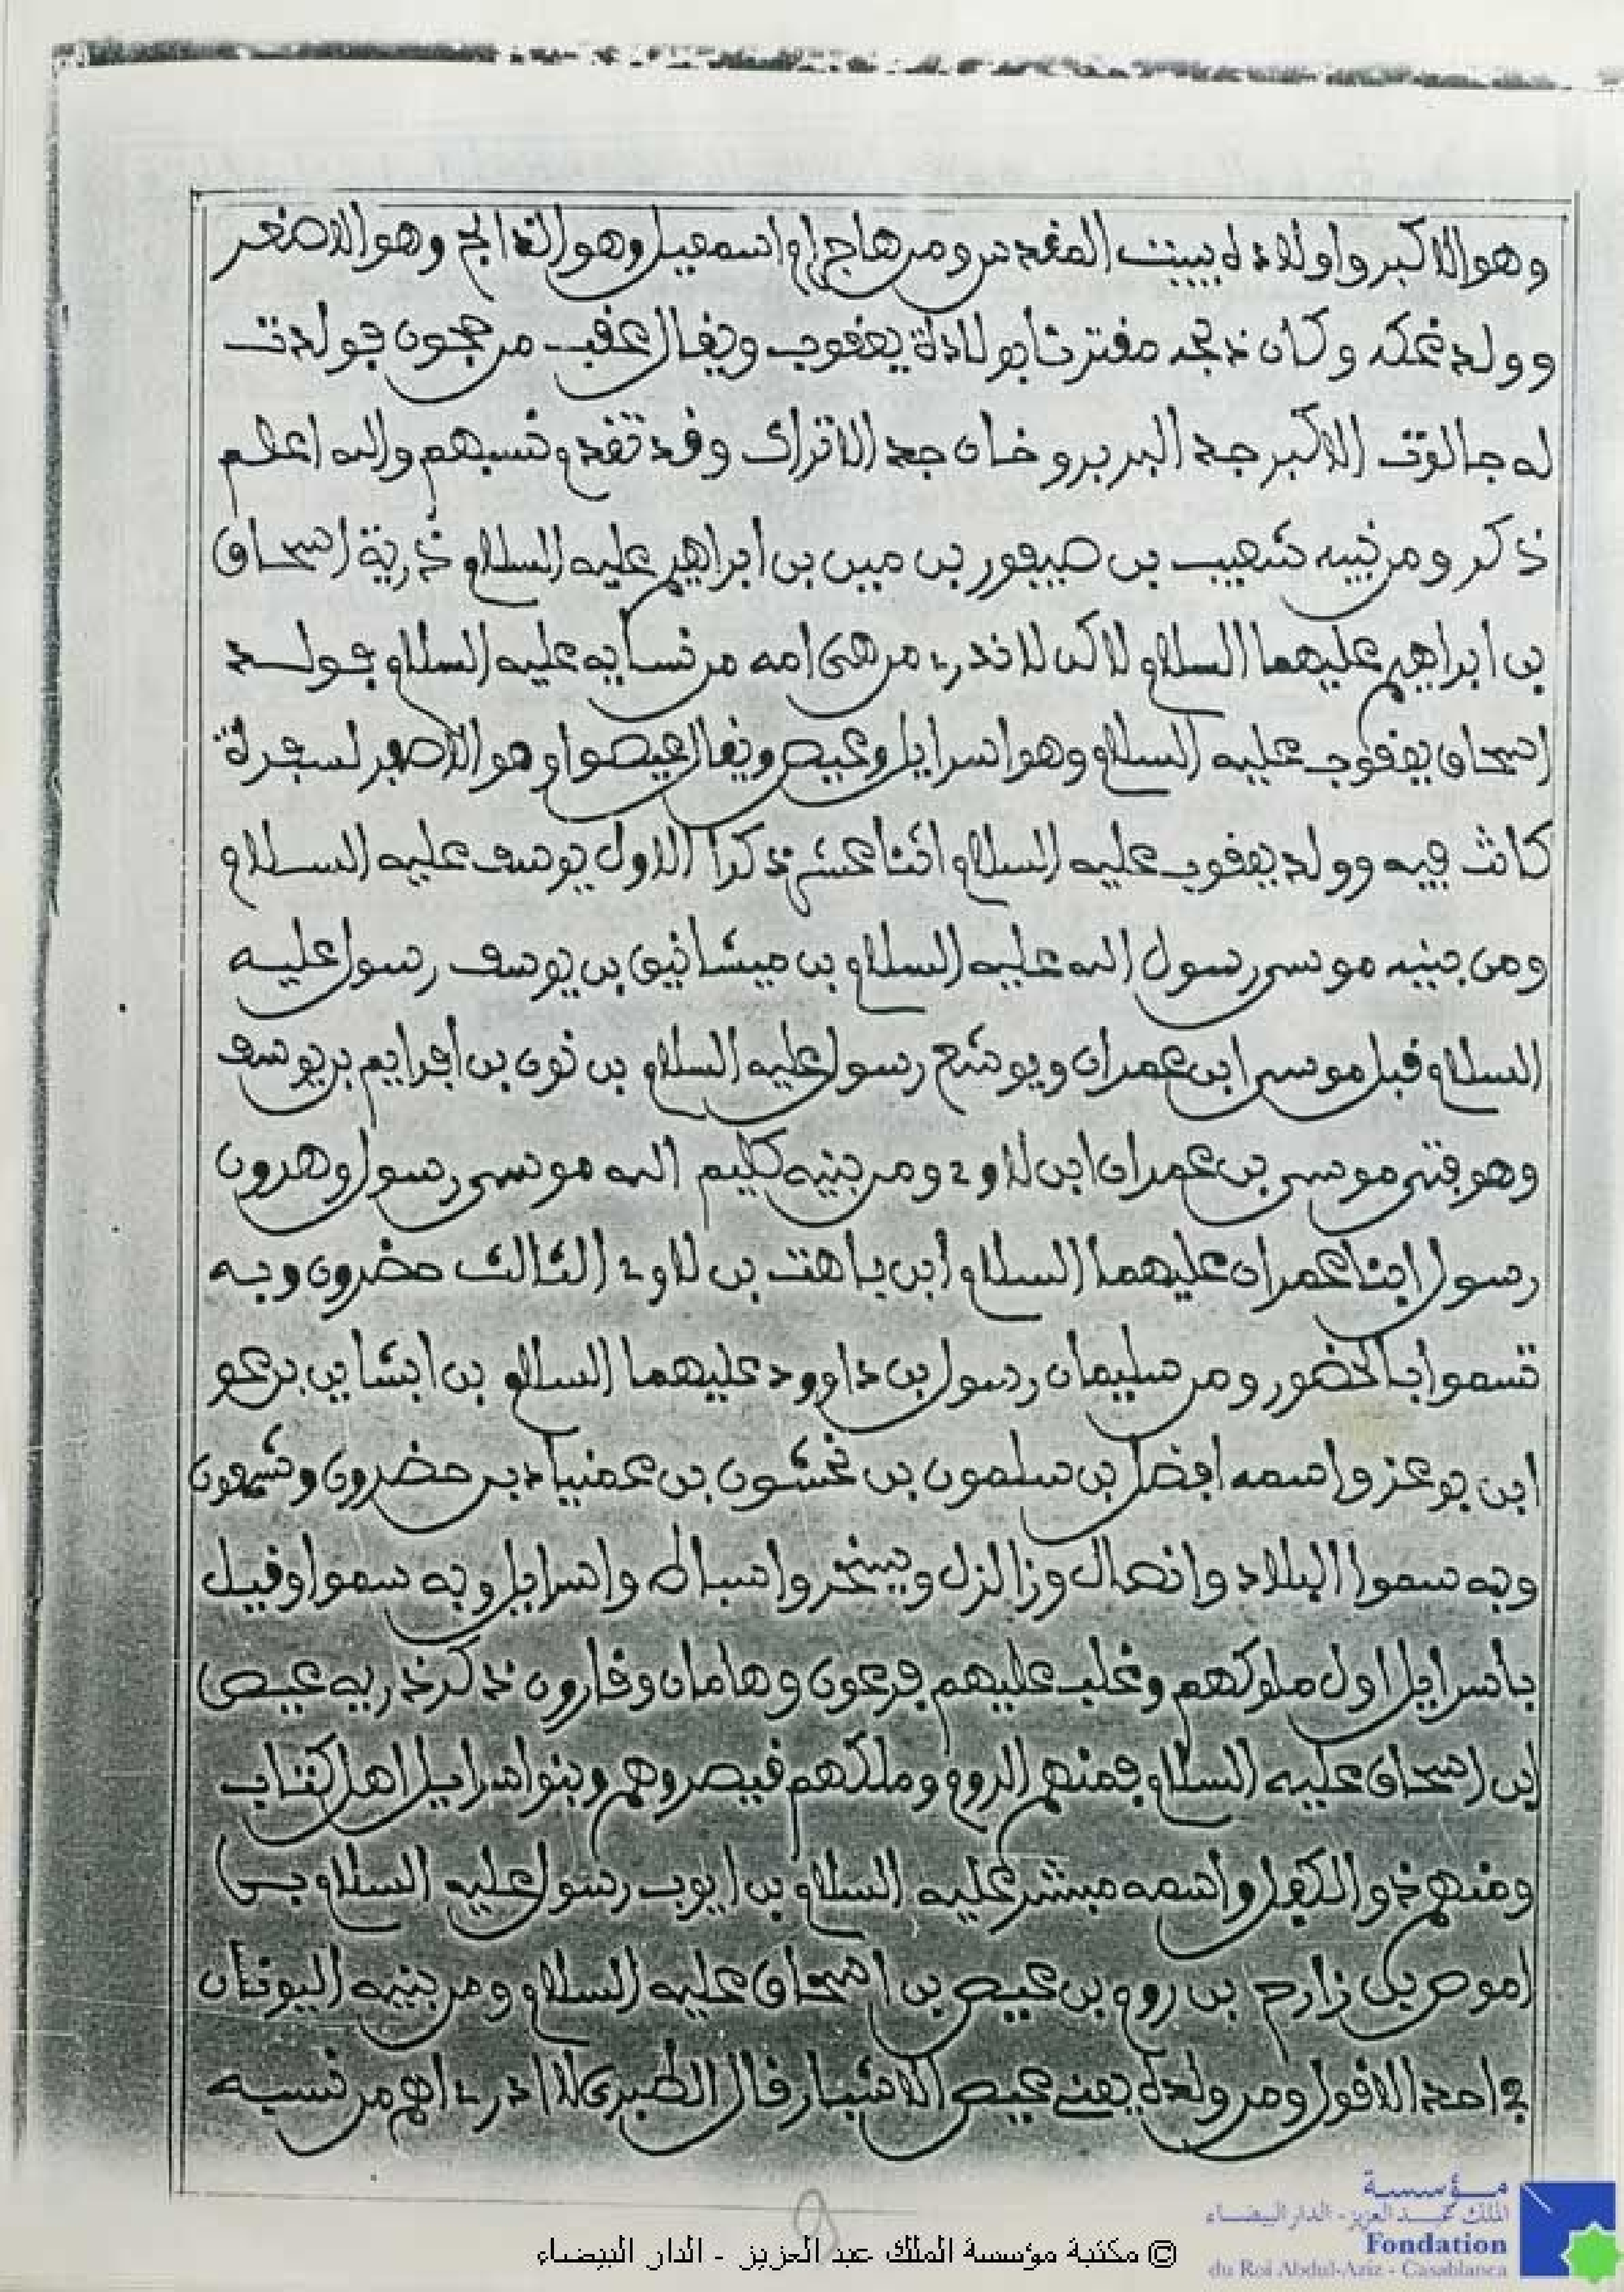 وهو الاكبر واولاده ببيت المقدس ومن هاجر ام اسمعيل وهو الذابح وهو الاصغر
وولد بمكة وكان ذبحه مقترنا بولادة يعقوب ويقال عقب من عجون فولدت
له جالوت الاكبر جد البربر وخان جد الاتراك وقد تقدم نسبهم والله اعلم
ذكر ومن نبيه شعيب بن صيفور بن مين بن ابراهيم عليه السلام ذرية اسحاق
بن ابراهيم عليهما السلام لاكن لا ندرے من هى امه من نسايه عليه السلام فولد
اسحاق يعقوب عليه السلام وهو اسرايل وعيص ويقال عيصوا وهو الاصفر لسفرة
كانت فيه وولد يعقوب عليه السلام اثنا عشر ذكرا الاول يوسف عليه السلام
ومن بنيه موسى رسول الله عليه السلام بن ميشا نبى بن يوسف رسول عليه
السلام قبل موسى ابن عمران ويوشع رسول عليه السلام بن نون بن افرايم بن يوسف
وهو فتى موسى بن عمران ابن لاوے ومن بنيه كليم الله موسى رسول وهرون
رسول ابنا عمران عليهما السلام ابن ياهت بن لاوے الثالث حضرون وبه
تسموا بالحضور ومن سليمان رسول بن داوود عليهما السلام بن ابشا بن برعو
ابن بوعز واسمه افضل بن سلمون بن نحشون بن عمنياد بن حضرون وشمعون
وبه سموا البلاد وانصال وزالزل ويسخر واسباط واسرايل وبه سموا وقيل
باسرايل اول ملوكهم وغلب عليهم فرعون وهامان وقارون ذكر ذريه عيص
ابن اسحاق عليه السلام فمنهم الروم وملكهم قيصر وهم وبنوا اسرايل اهل كتاب
ومنهم ذو الكفل واسمه مبشر عليه السلام بن ايوب رسول عليه السلام بن
اموص بن زارح بن روم بن عيص بن اسحاق عليه السلام ومن بنيه اليونان
في احد الاقول ومن ولده يعنے عيص الاشبار قال الطبرى لا ادرے اهم من نسبه
© مكتبة مؤسسة الملك عبد العزيز - الدار البيضاء
مؤسسة
الملك عبد العزيز - الدار البيضاء
Fondation
du Roi Abdul-Aziz - Casablanca